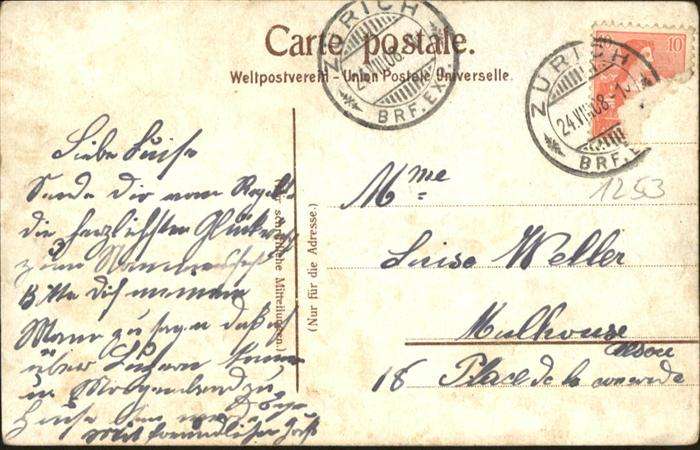 Carte postale.
Weltpostverein - Union Postale Universelle.
ZÜRICH
24.VII.08
BRF. EXP.
10
ZÜRICH
24.VII.08.-1
BRF. E
1253
Liebe Luise
Sende Dir vom
die herzlichsten Glück
zum Namens
Bitte Dich meinem
Mann zu sagen daß ich
über Luzern komme
Hause
Mit freundlichem Gruß
Für schriftliche Mitteilungen.)
(Nur für die Adresse.)
Mme
Luise Weller
Mulhouse
Alsace
18 Place de la concorde